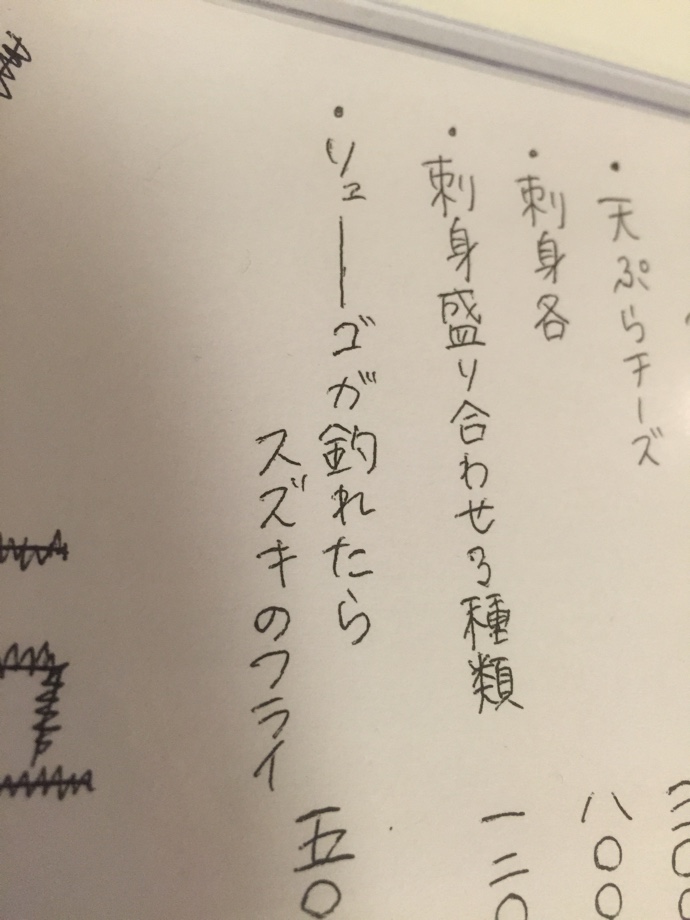 ・天ぷらチーズ
・刺身各 八〇〇
・刺身盛り合わせ3種類 一二〇
・リューゴが釣れたら
スズキのフライ 五〇